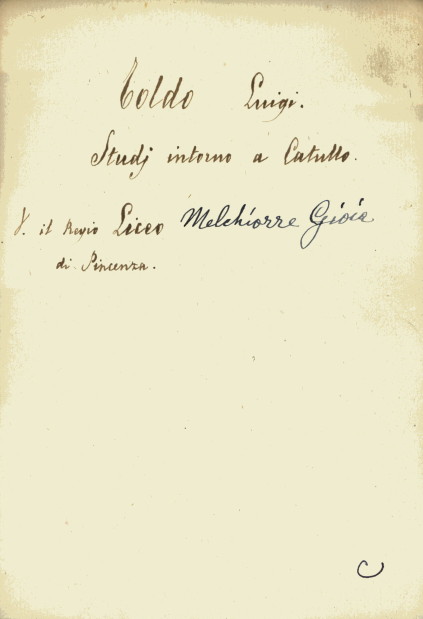 Toldo Luigi.
Studj intorno a Catullo.
V. il Regio Liceo Melchiorre Gioia
di Piacenza.
C